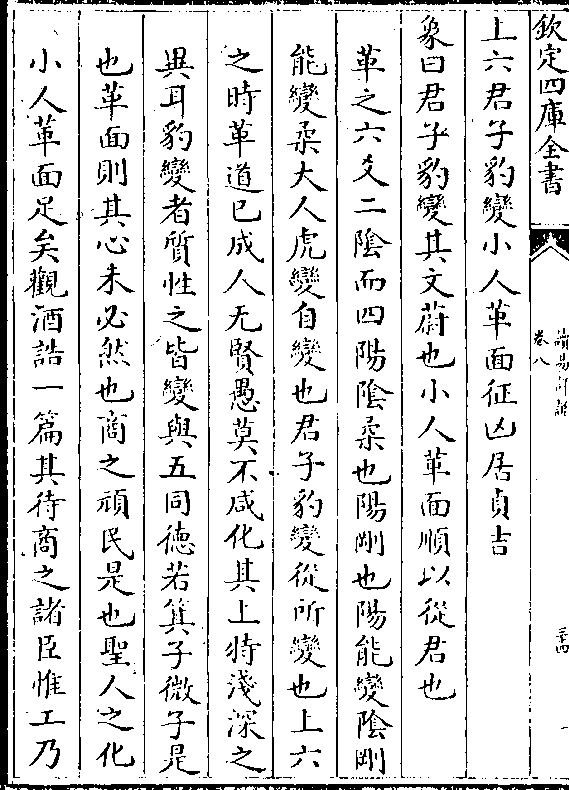 欽定四庫全書
卷八
上六君子豹變小人革面征凶居貞吉
象曰君子豹變其文蔚也小人革面順以從君也
革之六爻二隂而四陽隂柔也陽剛也陽能變隂剛
能變柔大人虎變自變也君子豹變從所變也上六
之時革道已成人无賢愚莫不咸化其上特淺深之
異耳豹變者質性之皆變與五同徳若箕子微子是
也革面則其心未必然也商之頑民是也聖人之化
小人革面足矣觀酒誥一篇其待商之諸臣惟工乃